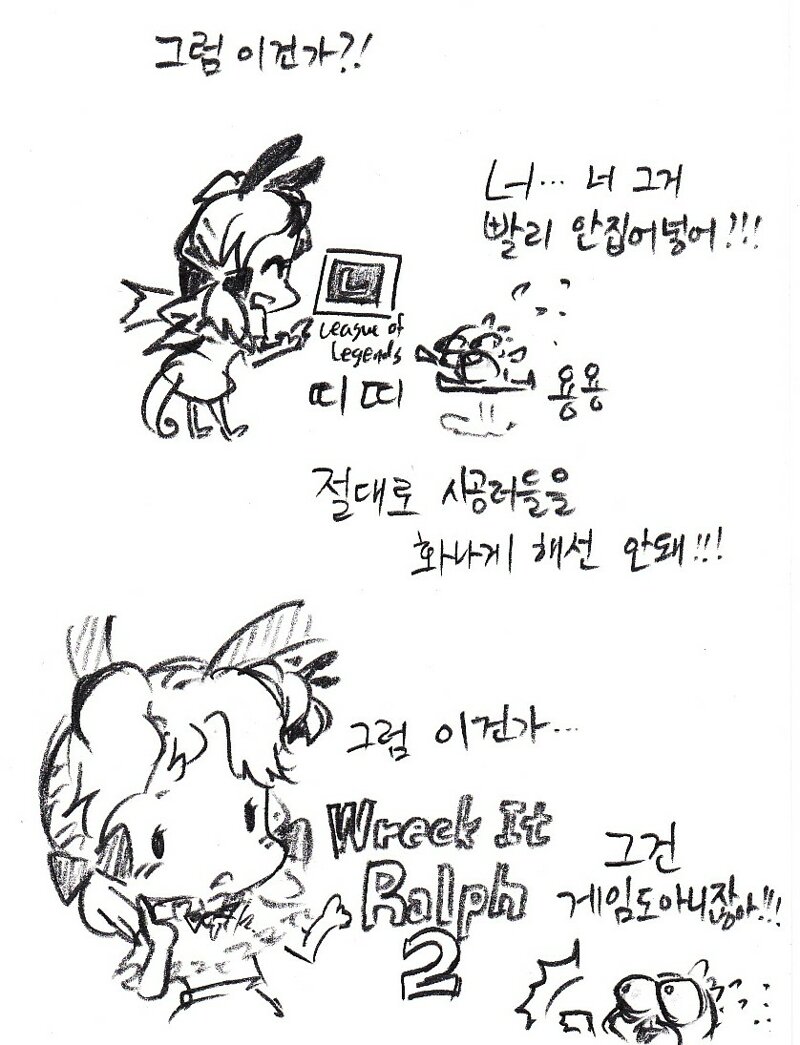 그럼 이건가?!
너… 너 그거
빨리 안집어넣어!!!
L
League of
Legends
띠띠
용용
절대로 시공러들을
화나게 해선 안돼!!!
그럼 이건가…
Wreck It
Ralph
2
그건
게임도아니잖아!!!